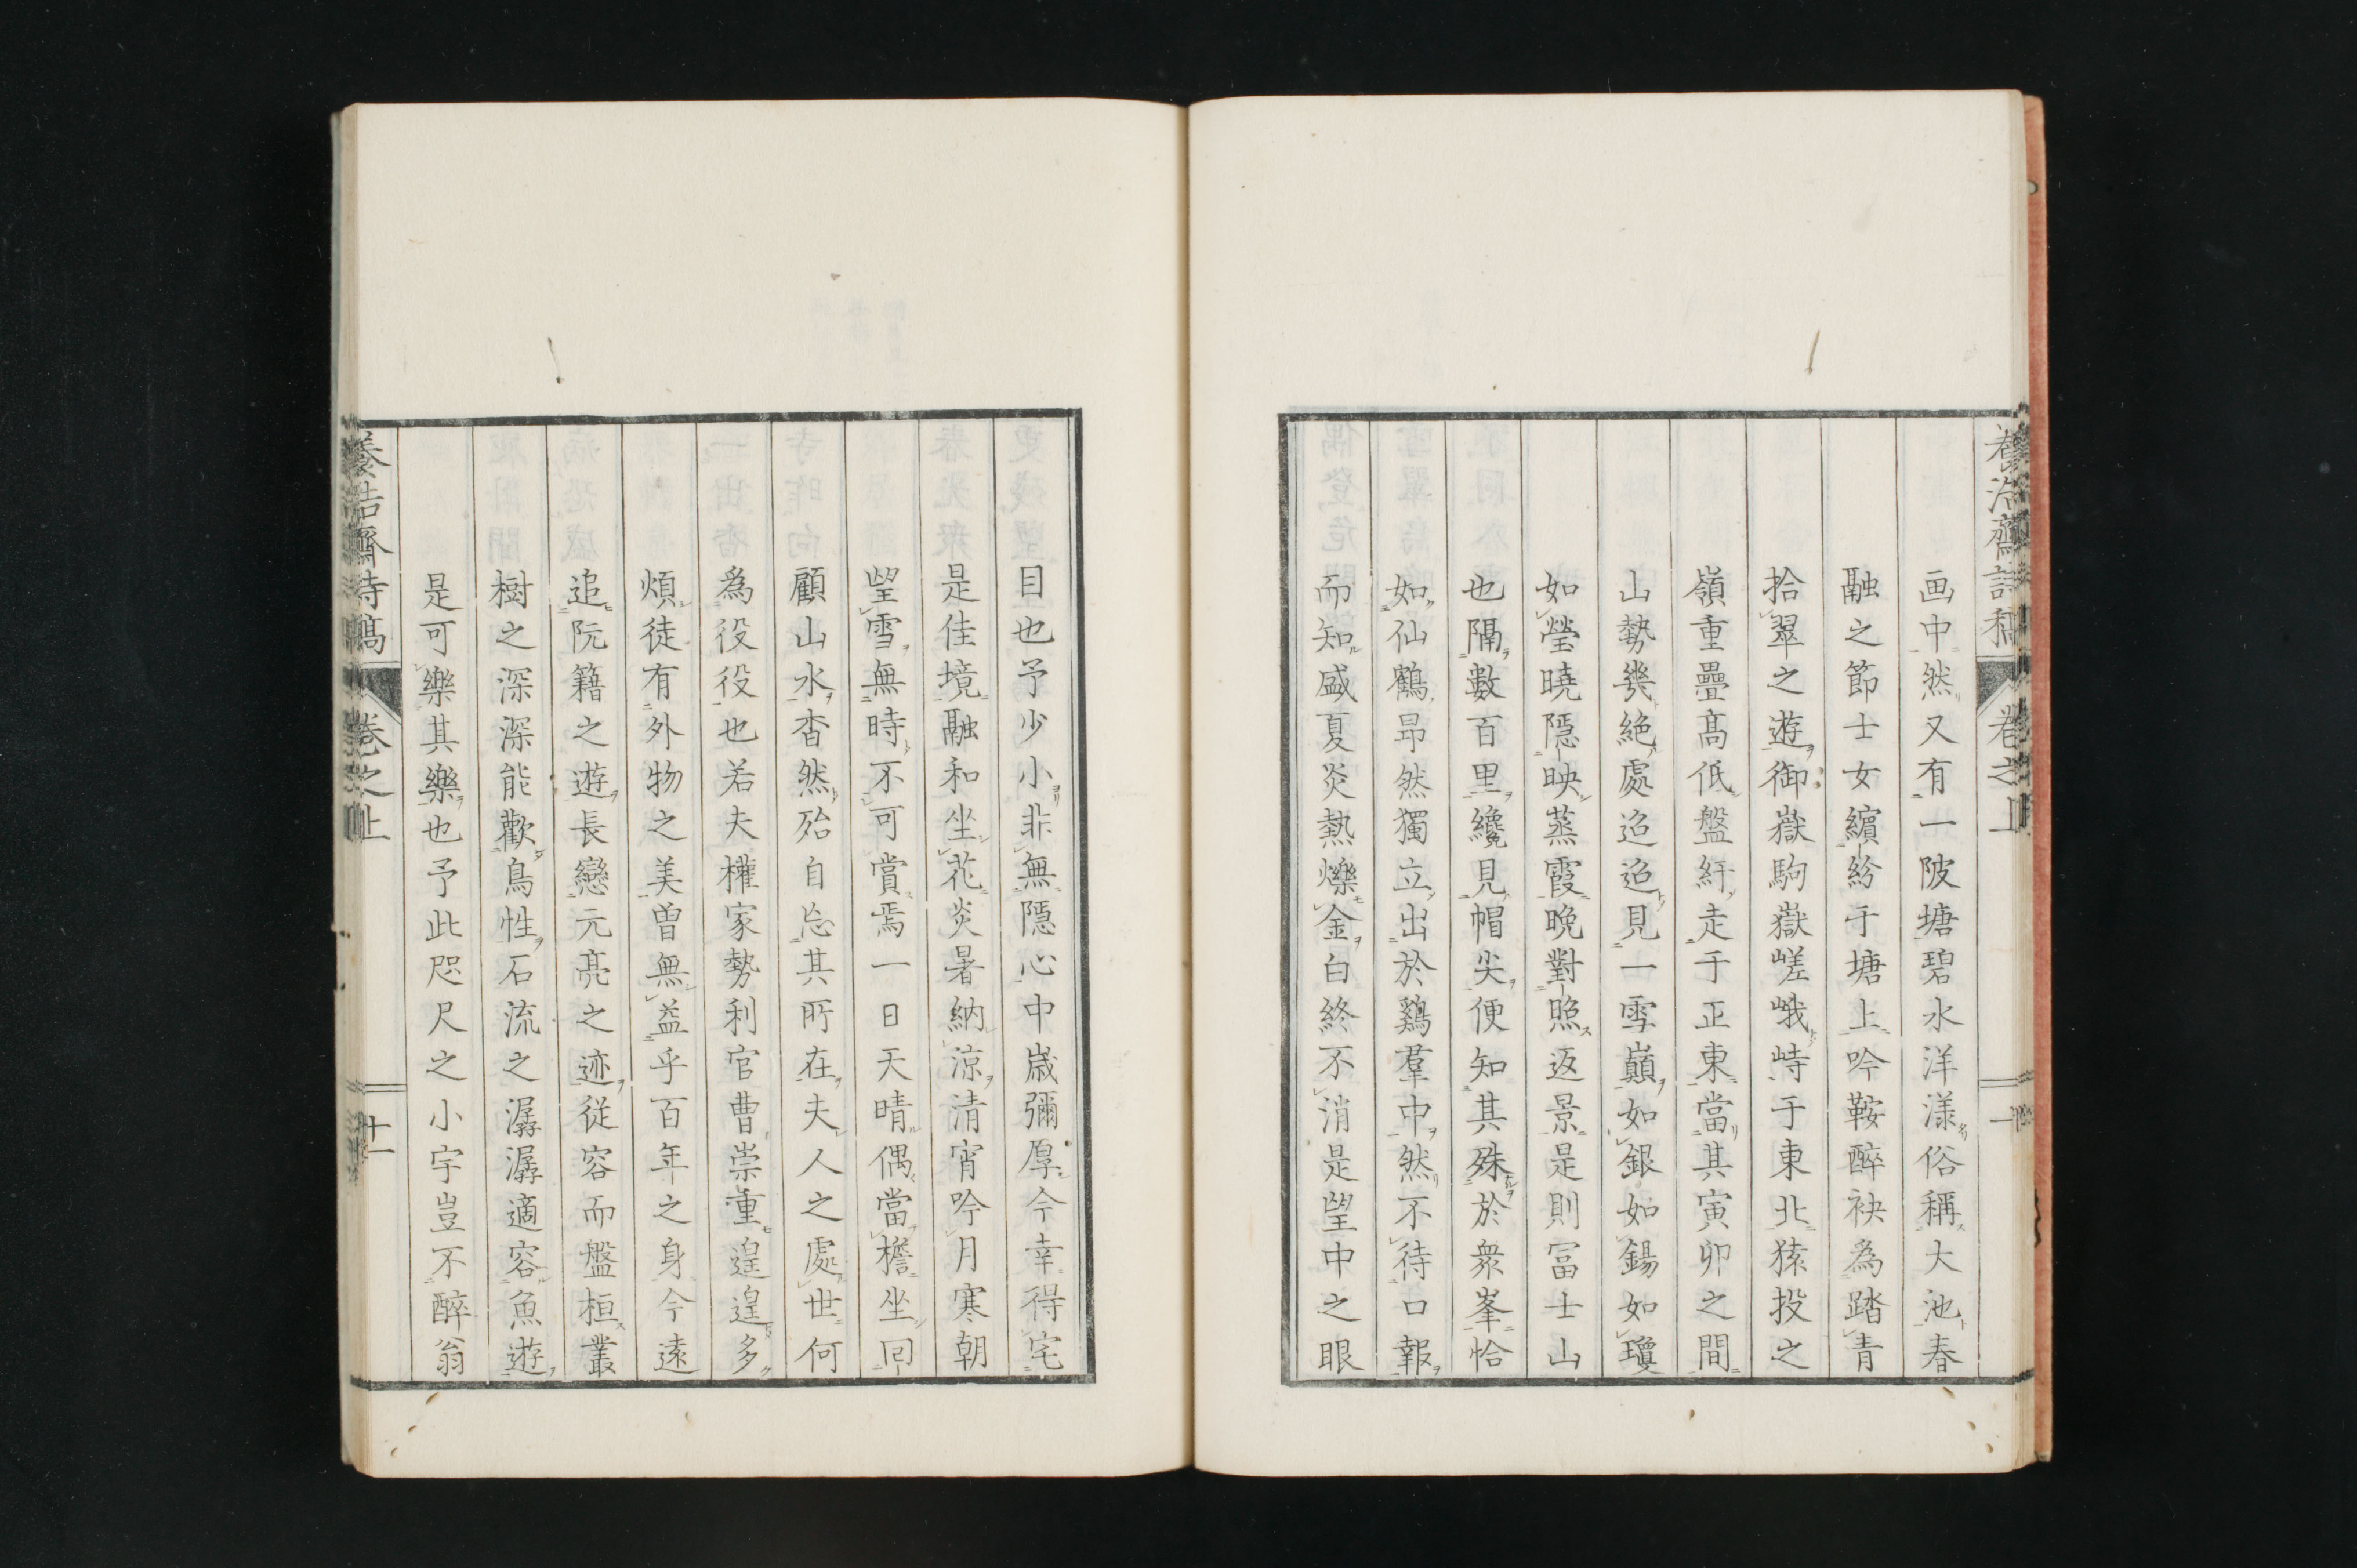 画中然又有一陂塘碧水洋漾俗稱大池春
融之節士女繽紛于塘上吟鞍醉袂為踏青
拾翠之遊御嶽駒嶽嵯峨峙于東北猿投之
嶺重疊髙低盤紆走于正東當其寅卯之間
山勢幾絶處迢迢見一雪巓如銀如鍚如瓊
如瑩曉隱映蒸霞晩對照返景是則冨士山
也隔數百里纔見帽尖便知其殊於衆峯恰
如仙鶴昂然獨立出於鷄羣中然不待口報
而知盛夏炎熱爍金白終不消是望中之眼
目也予少小非無隱心中歳彌厚今幸得宅
是佳境融和坐花炎暑納涼清宵吟月寒朝
望雪無時不可賞焉一日天晴偶當檐坐回
顧山水杳然殆自忘其所在夫人之處世何
爲役役也若夫權家勢利官曹崇重遑遑多
煩徒有外物之美曽無益乎百年之身今遠
追阮籍之遊長戀元亮之迹從容而盤桓叢
樹之深深能歡鳥性石流之潺潺適容魚遊
是可樂其樂也予此咫尺之小宇豈不醉翁
養浩齋詩稿 卷之上 十一